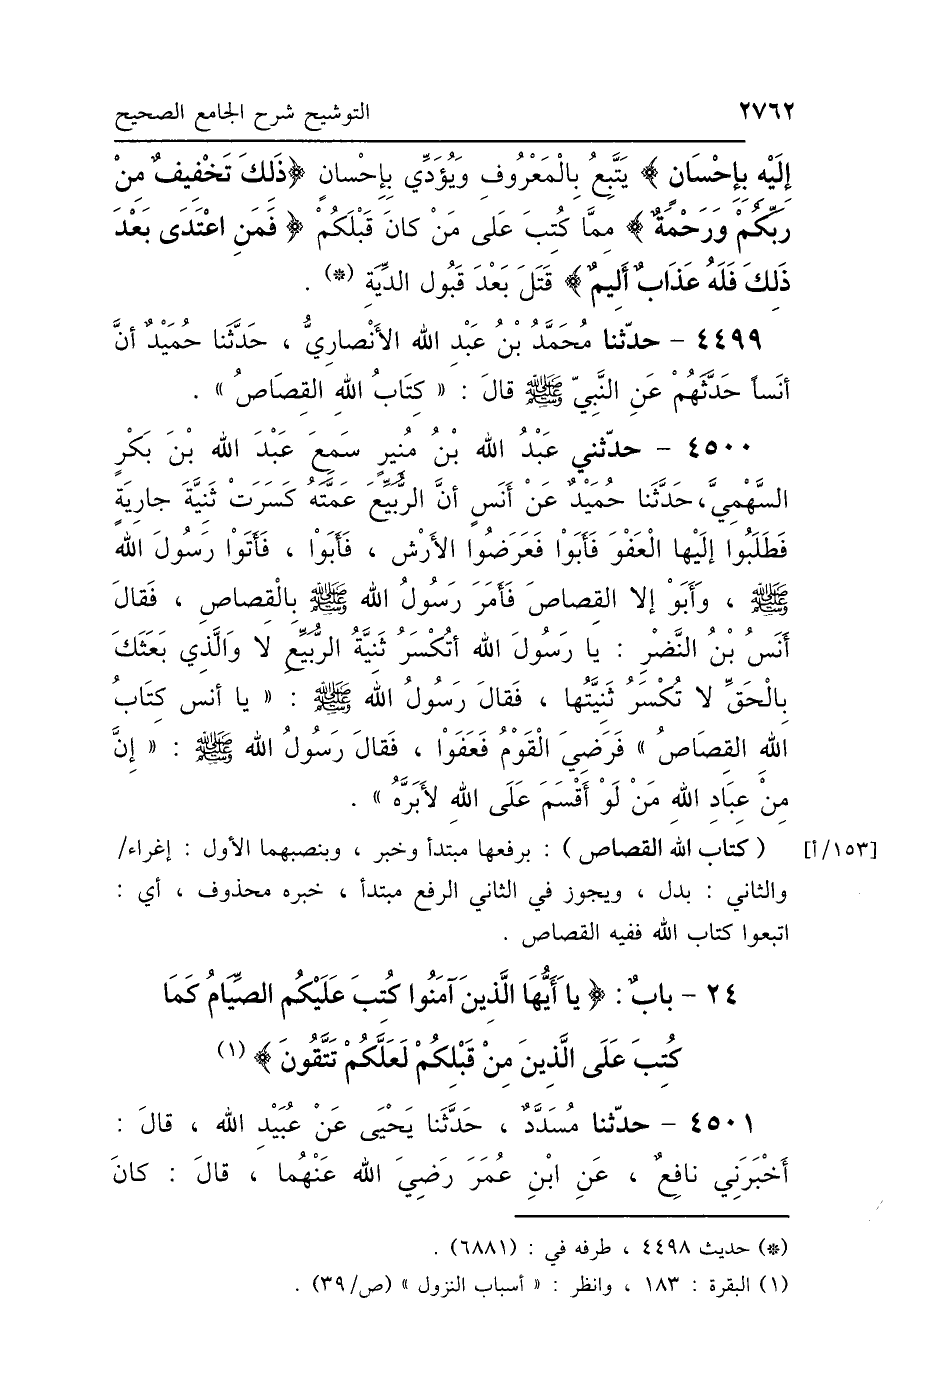 ٢٧٦٢ التوشيح شرح الجامع الصحيح
إِلَيْهِ بِإِحْسَانٍ ﴾ يَتَّبِعُ بِالْمَعْرُوفِ وَيُؤَدِّي بِإِحْسانٍ ﴿ذَلِكَ تَخْفِيفٌ مِنْ
رَبِّكُمْ وَرَحْمَةٌ ﴾ مِمَّا كُتِبَ عَلَى مَنْ كانَ قَبْلَكُمْ ﴿ فَمَنِ اعْتَدَى بَعْدَ
ذَلِكَ فَلَهُ عَذَابٌ أَلِيمٌ ﴾ قَتَلَ بَعْدَ قَبُولِ الدِّيَةِ (*) .
٤٤٩٩ - حدّثنا مُحَمَّدُ بْنُ عَبْدِ اللهِ الأَنْصارِيُّ ، حَدَّثَنَا حُمَيْدٌ أنَّ
أنَساً حَدَّثَهُمْ عَنِ النَّبِيّ ﷺ قالَ : « كِتَابُ اللهِ القِصَاصُ » .
٤٥٠٠ - حدّثني عَبْدُ اللهِ بْنُ مُنِيرٍ سَمِعَ عَبْدَ اللهِ بْنَ بَكْرٍ
السَّهْمِيَّ، حَدَّثَنا حُمَيْدٌ عَنْ أَنَسٍ أنَّ الرُّبَيِّعَ عَمَّتَهُ كَسَرَتْ ثَنِيَّةَ جارِيَةٍ
فَطَلَبُوا إلَيْها الْعَفْوَ فَأَبَوْا فَعَرَضُوا الأَرْشَ ، فَأَبَوْا ، فَأَتَوْا رَسُولَ اللهِ
ﷺ ، وَأَبَوْ إلا القِصاصَ فَأَمَرَ رَسُولُ اللهِ ﷺ بِالْقِصاصِ ، فَقالَ
أَنَسُ بْنُ النَّضْرِ : يا رَسُولَ اللهِ أتُكْسَرُ ثَنِيَّةُ الرُّبَيِّعِ لا وَالَّذِي بَعَثَكَ
بِالْحَقِّ لا تُكْسَرُ ثَنِيَّتُها ، فَقالَ رَسُولُ اللهِ ﷺ : « يا أنس كِتَابُ
اللهِ القِصَاصُ » فَرَضِيَ الْقَوْمُ فَعَفَوْا ، فَقالَ رَسُولُ اللهِ ﷺ : « إنَّ
مِنْ عِبَادِ اللهِ مَنْ لَوْ أَقْسَمَ عَلَى اللهِ لأَبَرَّهُ » .
[١٥٣/أ] ( كتاب الله القصاص ) : برفعها مبتدأ وخبر ، وبنصبهما الأول : إغراء/
والثاني : بدل ، ويجوز في الثاني الرفع مبتدأ ، خبره محذوف ، أي :
اتبعوا كتاب الله ففيه القصاص .
٢٤ - بابٌ : ﴿ يا أَيُّهَا الَّذِينَ آمَنُوا كُتِبَ عَلَيْكُم الصِّيَامُ كَمَا
كُتِبَ عَلَى الَّذِينَ مِنْ قَبْلِكُمْ لَعَلَّكُمْ تَتَّقُونَ ﴾ (١)
٤٥٠١ - حدّثنا مُسَدَّدٌ ، حَدَّثَنا يَحْيَى عَنْ عُبَيْدِ اللهِ ، قالَ :
أَخْبَرَنِي نافِعٌ ، عَنِ ابْنِ عُمَرَ رَضِيَ اللهُ عَنْهُما ، قالَ : كانَ
(*) حديث ٤٤٩٨ ، طرفه في : (٦٨٨١) .
(١) البقرة : ١٨٣ ، وانظر : « أسباب النزول » (ص/٣٩) .